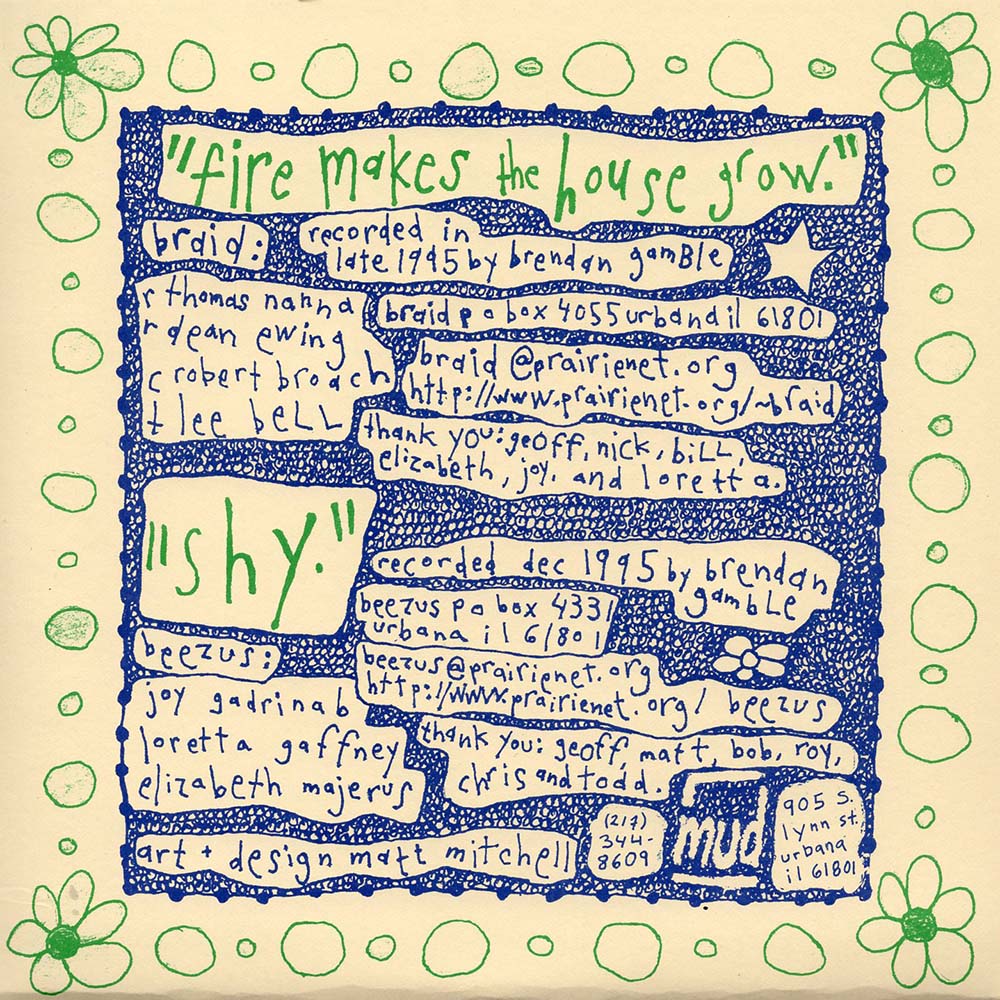 "fire makes the house grow."
braid:
recorded in
late 1995 by brendan gamble
r thomas nanna
r dean ewing
c robert broach
t lee bell
braid p o box 4055 urbana il 61801
braid@prairienet.org
http://www.prairienet.org/~braid
thank you: geoff, nick, bill,
elizabeth, joy, and loretta.
"shy."
recorded dec 1995 by brendan
gamble
beezus po box 433
urbana il 61801
beezus:
beezus@prairienet.org
http://www.prairienet.org/ beezus
joy gadrinab
loretta gaffney
elizabeth majerus
thank you: geoff, matt, bob, roy,
chris and todd.
art + design matt mitchell
(217)
344-
8609
mud
905 s.
lynn st.
urbana
il 61801